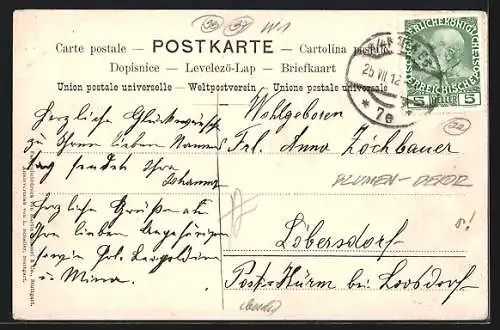 Carte postale — POSTKARTE — Cartolina postale
Dopisnice — Levelező-Lap — Briefkaart
Union postale universelle — Weltpostverein — Unione postale universale
25 VII 12
* 7e *
5 HELLER 5
W1
Herzliche Glückwünsche
zu Ihrem lieben Namens
tag sendet Ihre
Johanna
Herzliche Grüße an
Ihre lieben Angehörigen
sowie Frl. Leopoldine
u. Minna.
Wohlgeboren
Frl. Anna Zöchbauer
BLUMEN-DEKOR
Löbersdorf
Post: Hürm bei Loosdorf